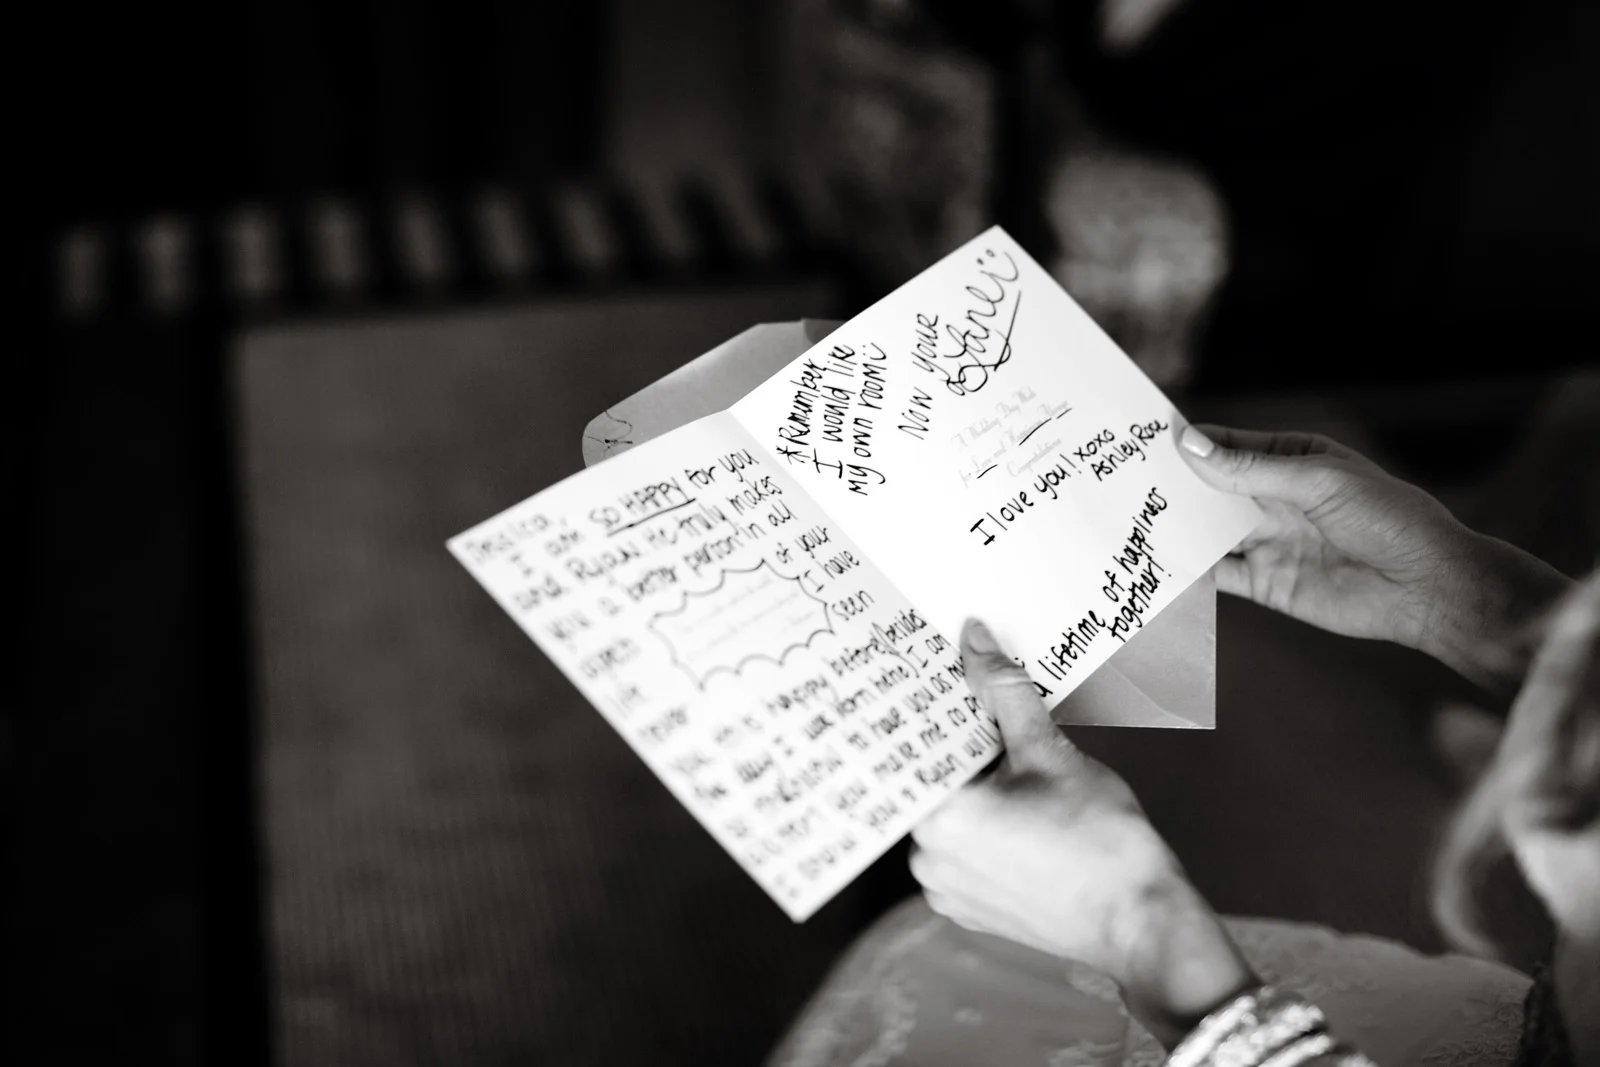 I am SO HAPPY for you
and Ryan. He truly makes
you a better person in all
of your
I have
life
seen
never
you this happy before (besides
the day I was born hehe) I am
to have you as my
you make me so
you & Ryan will
*Remember
I would like
my own room
Now your
a Lane
A Wedding Day Wish
for Love and Happiness Always
Congratulations
I love you! xoxo
Ashley Rose
a lifetime of happiness
together!